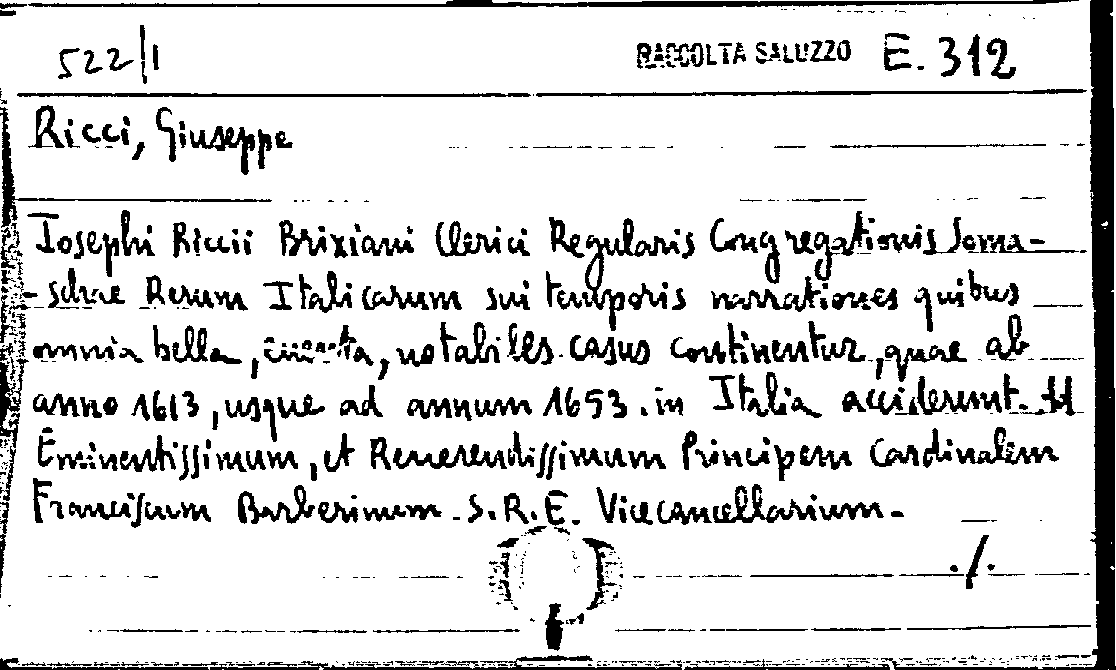 522/1 RACCOLTA SALUZZO E. 312
Ricci, Giuseppe
Josephi Riccii Brixiani Clerici Regularis Congregationis Soma-
-schae Rerum Italicarum sui temporis narrationes quibus
omnia bella, notabiles casus continentur, quae ab
anno 1613, usque ad annum 1653. in Italia acciderunt.
Eminentissimum, et Reuerendissimum Principem Cardinalem
Franciscum Barberinum. S.R.E. Vicecancellarium.
./.